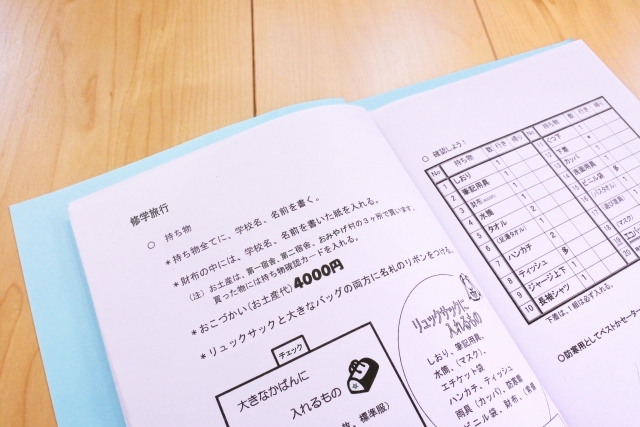 修学旅行
○ 持ち物
＊持ち物全てに、学校名、名前を書く。
＊財布の中には、学校名、名前を書いた紙を入れる。
（注）お土産は、第一宿舎、第二宿舎、おみやげ村の３ヶ所で買います。
買った物には持ち物確認カードを入れる。
＊おこづかい（お土産代）4000円
＊リュックサックと大きなバッグの両方に名札のリボンをつける。
チェック
大きなかばんに
入れるもの
標準服）
リュックサックに
入れるもの
しおり、筆記用具、
水筒、（マスク）、
エチケット袋
ハンカチ、ティッシュ
雨具（カッパ）、防寒着
ビニール袋、財布、
○ 確認しよう！
No 持ち物 数 行き 帰り No 持ち物 数 行き 帰り
1 しおり 1 11 くつ下
2 筆記用具 1 12 下着 *
3 財布 1 13 カッパ 1
4 水筒 1 14 洗面用具 1
5 タオル 2 15 ビニール袋 多
6 （反湯タオル） 1 16 （バスタオル）
7 ハンカチ 2 17 （マスク）
8 ティッシュ 多 18
9 ジャージ上下 1 19
10 長袖シャツ 1 20
下着は、1組は必ず入れる。
○防寒用としてベストかセーター